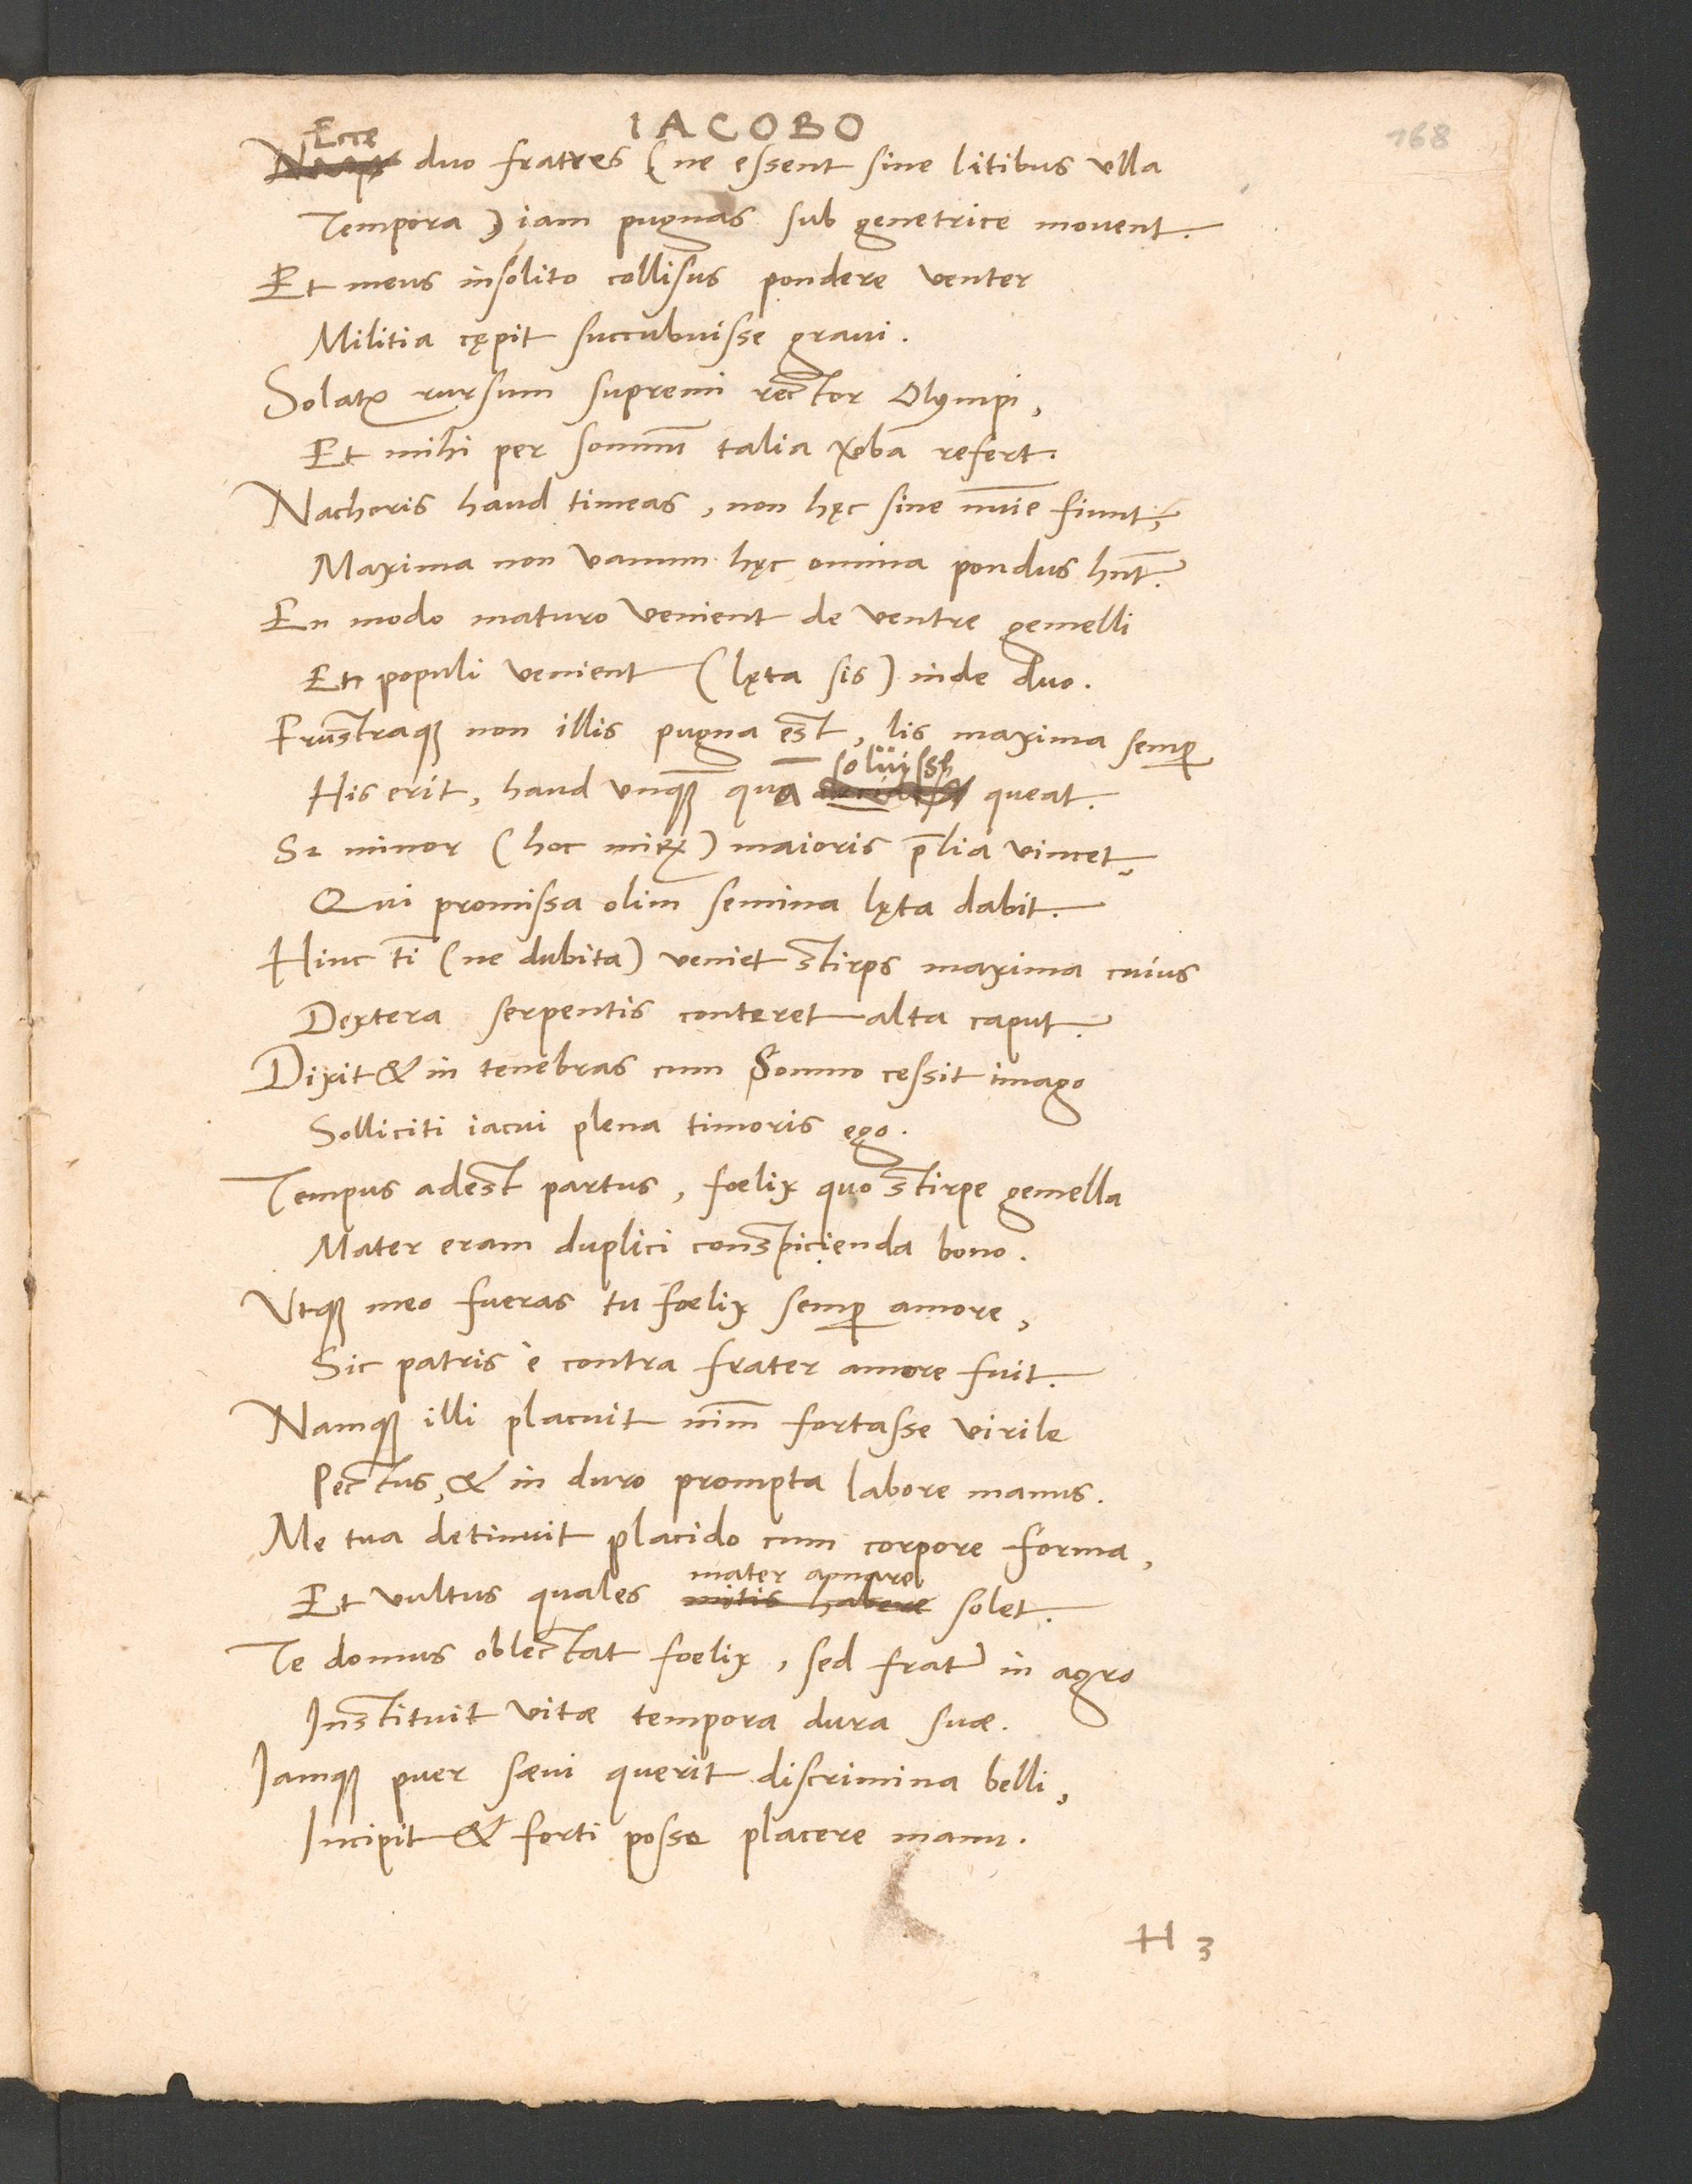 IACOBO
168
Ecce
duo fratres (ne essent sine litibus ulla
Tempora) iam pugnas sub genetrice mouent.
Et meus insolito collisus pondere venter
Militia cępit succubuisse graui.
Solatr rursum supremi rector Olympi,
Et mihi per somnū talia verba refert.
Nachoris haud timeas, non hęc sine nuīe fiunt,
Maxima non vanum hęc omina pondus hn̄t.
En modo maturo venient de ventre gemelli
En populi venient (lęta sis) inde duo.
Frustraque non illis pugna est, lis maxima semper
soluisse
His erit, haud unquam quā queat.
Sz minor (hoc mirum) maioris p̄lia vincet,
Qui promissa olim semina lęta dabit.
Hinc ti (ne dubita) veniet stirps maxima cuius
Dextera serpentis conteret alta caput.
Dixit & in tenebras cum Somno cessit imago
Solliciti iacui plena timoris ego.
Tempus adest partus, foelix quo stirpe gemella
Mater eram duplici conspicienda bono.
Utque meo fueras tu foelix semper amore,
Sic patris è contra frater amore fuit.
Namque illi placuit nim̄ fortasse virile
Pectus, & in duro prompta labore manus.
Me tua detinuit placido cum corpore forma,
mater amare
Et vultus quales mitis habere solet.
Te domus oblectat foelix, sed frater in agro
Instituit vitæ tempora dura suæ.
Iamque puer sæui querit discrimina belli,
Incipit & forti posse placere manu.
H 3